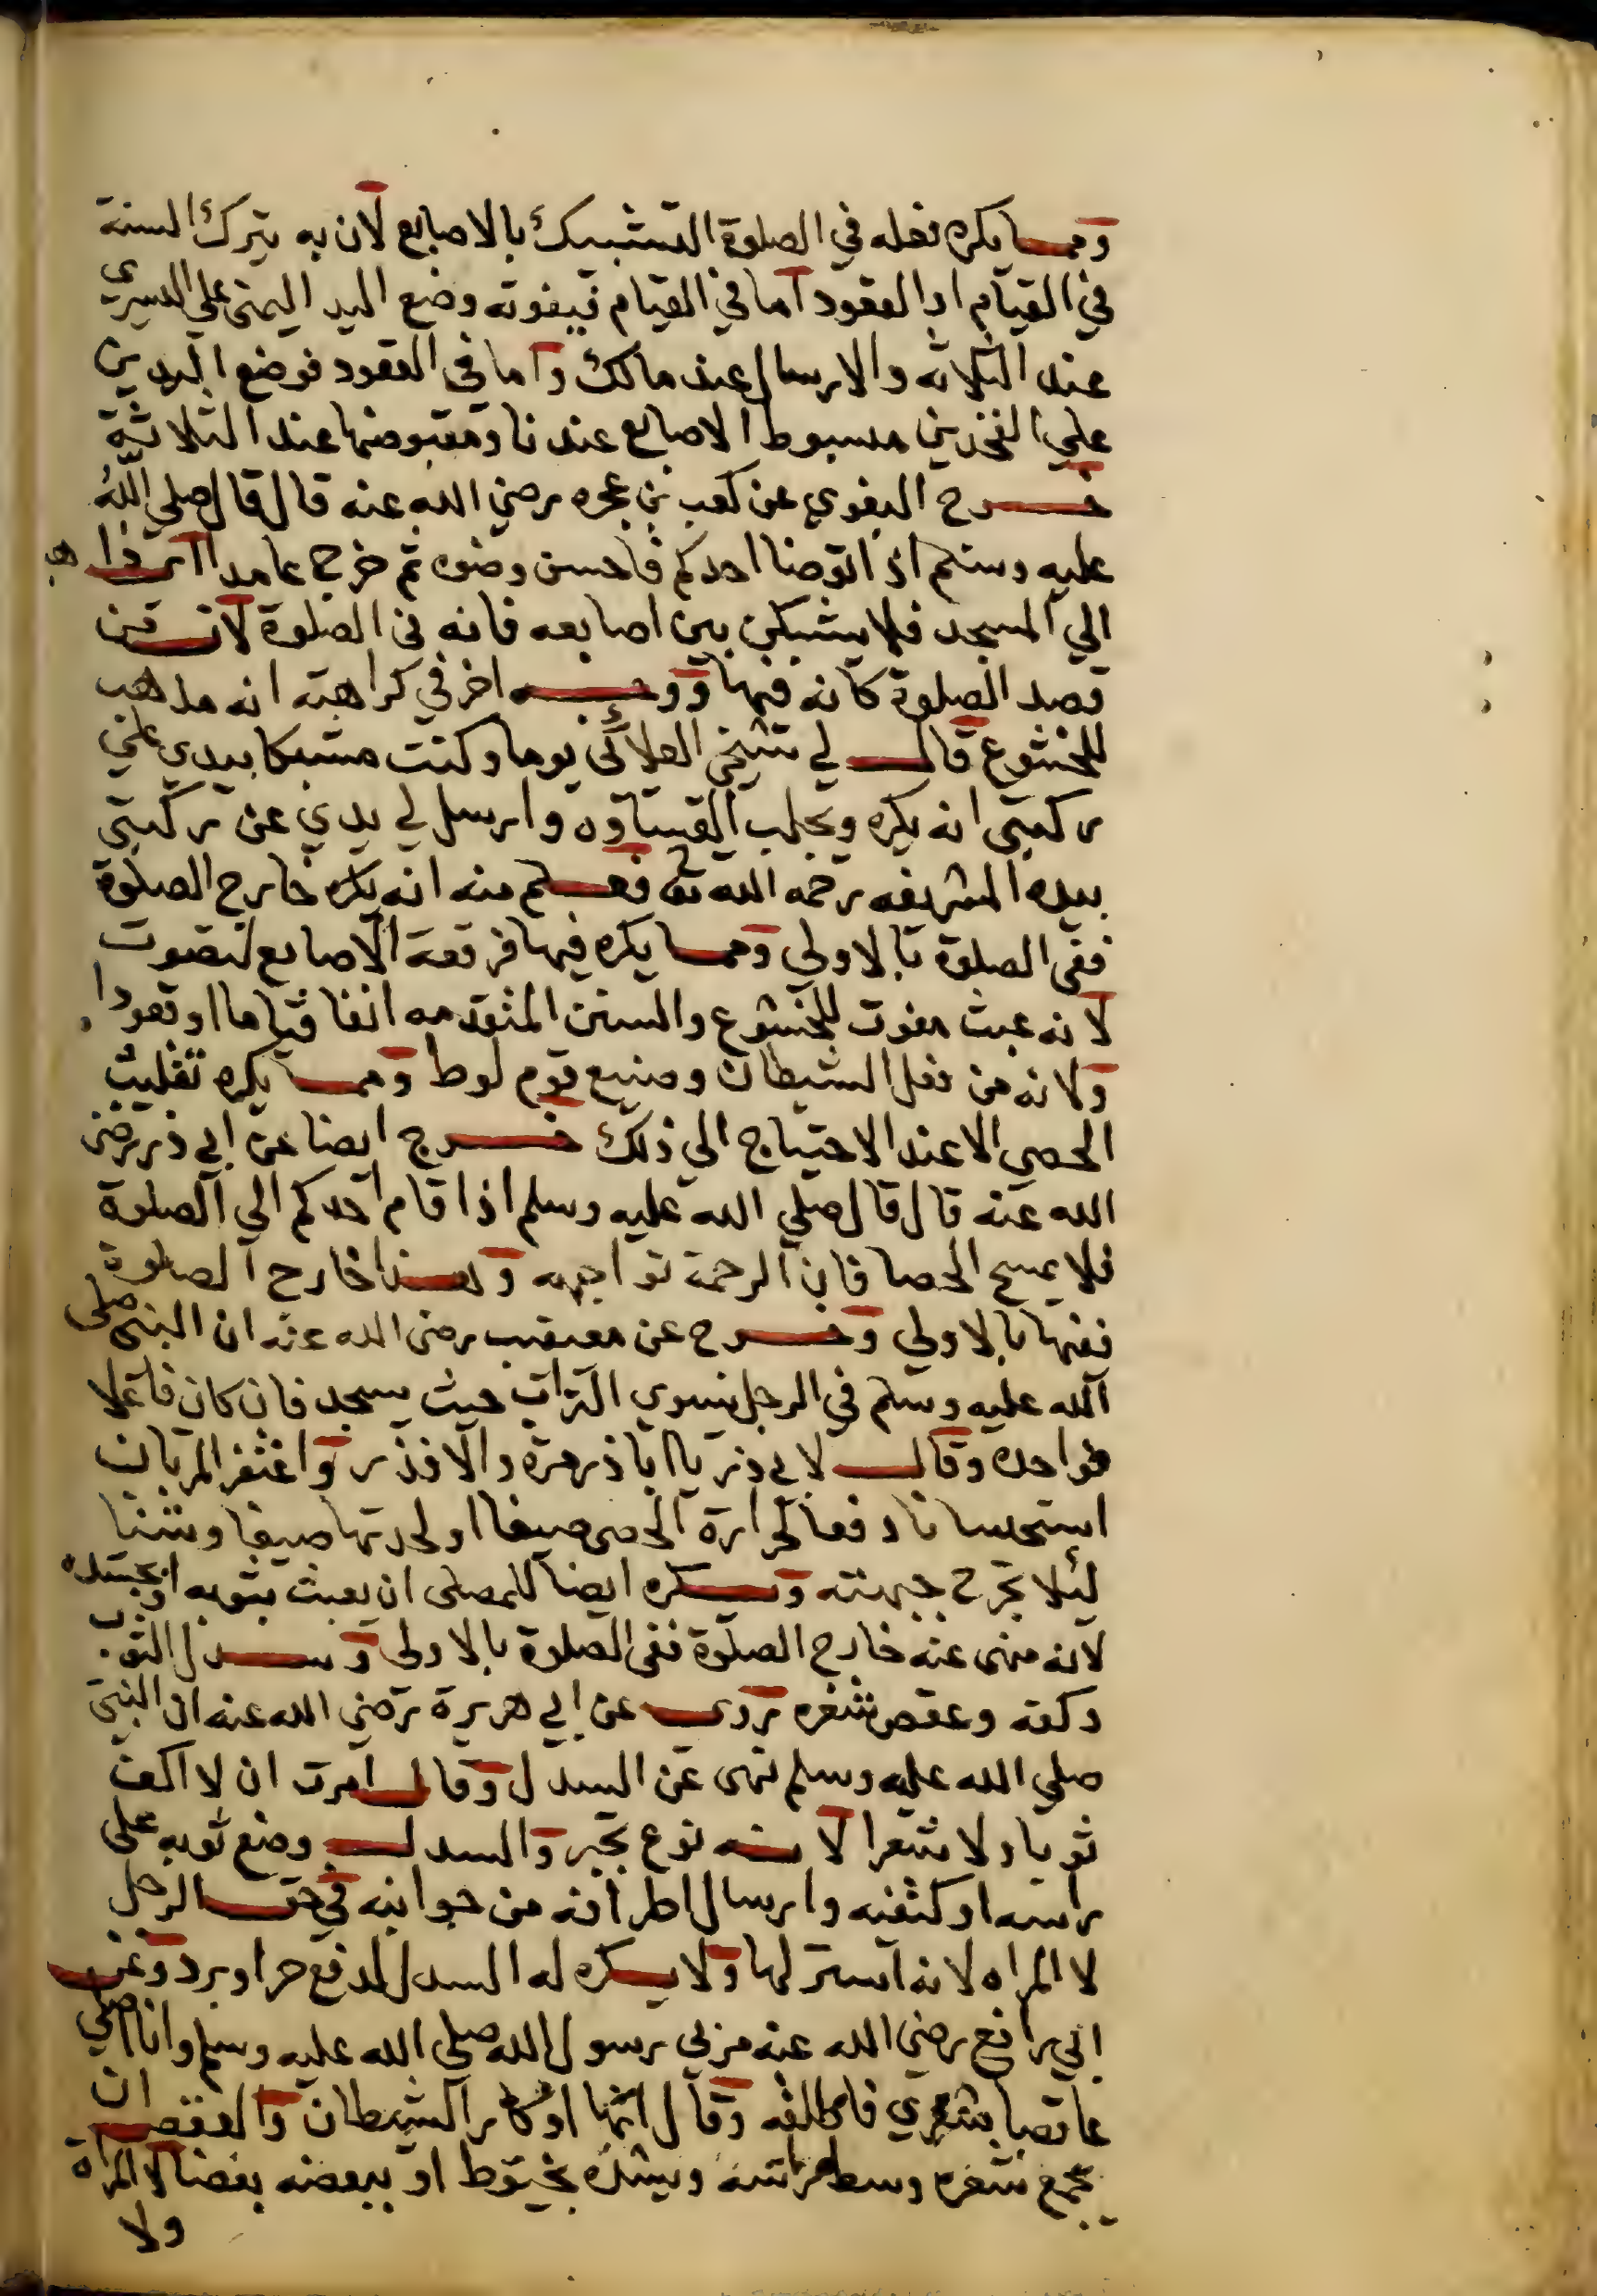 ومما يكره فعله في الصلوة التشبيك بالاصابع لان به يترك السنة
في القيام او القعود اما في القيام فيفوته وضع اليد اليمنى علي اليسري
عند الثلاثه والارسال عند مالك واما في القعود فوضع اليدين
علي الفخذين مبسوط الاصابع عندنا ومقبوضها عند الثلاثة
خرج البغوي عن كعب بن عجره رضي الله عنه قال قال صلي الله
عليه وسلم اذا توضا احدكم فاحسن وضوه ثم خرج عامدا
الي المسجد فلا يشبكن بين اصابعه فانه في الصلوة لان من
قصد الصلوة كانه فيها ووجه اخر في كراهته انه مذهب
للخشوع قال لي شيخي العلائي يوما وكنت مشبكا بيدي علي
ركبتي انه يكره ويجلب القساوه وارسل لي يدي عن ركبتي
بيده الشريفه رحمه الله تع فعلم منه انه يكره خارج الصلوة
ففي الصلوة بالاولي ومما يكره فيها فرقعة الاصابع لتصوت
لانه عبث مفوت للخشوع والسنن المتقدمه انفا قياما او قعودا
ولانه من فعل الشيطان وصنيع قوم لوط ومما يكره تقليب
الحصي الا عند الاحتياج الي ذلك خرج ايضا عن ابي ذر رضي
الله عنه قال قال صلي الله عليه وسلم اذا قام احدكم الي الصلوة
فلا يمسح الحصا فان الرحمة تواجهه وهذا خارج الصلوة
ففيها بالاولي وخرج عن معيقب رضي الله عنه ان النبي صلى
الله عليه وسلم في الرجل يسوي التراب حيث يسجد فان كان فاعلا
فواحده وقال لابي ذر يا ابا ذر مرة والا فذر واغتفر المرتان
استحسانا دفعا لحرارة الحصى صيفا او لحدتها صيفا وشتا
لئلا تجرح جبهته ويكره ايضا للمصلى ان يعبث بثوبه او بجسده
لانه منهى عنه خارج الصلوة ففي الصلوة بالاولى وسدل الثوب
وكفه وعقص شعره روي عن ابي هريرة رضي الله عنه ان النبي
صلي الله عليه وسلم نهى عن السدل وقال امرت ان لا اكف
ثوبا ولا شعرا لانه نوع تجبر والسدل وضع ثوبه على
راسه او كتفيه وارسال اطرافه من جوانبه في حق الرجل
لا المراه لانه استر لها ولا يكره له السدل لدفع حر او برد وعن
ابي رافع رضي الله عنه مر بي رسول الله صلي الله عليه وسلم وانا اصلي
عاقصا شعري فاطلقه وقال انها اوكار الشيطان والعقص ان
يجمع شعره وسط راسه ويشده بخيوط او ببعضه بعضا لا المراة
ولا